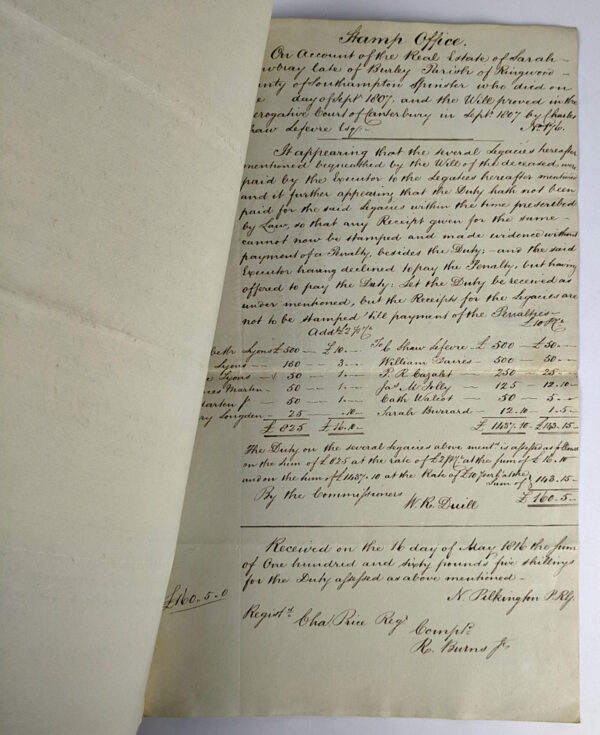 Stamp Office.
On Account of the Real Estate of Sarah
late of Burley Parish of Ringwood
of Southampton Spinster who died on
day of Sept 1807, and the Will proved in the
Court of Canterbury in Septr 1807 by Charles
haw Lefevre Esqr. No. 176.
It appearing that the several Legacies hereafter
mentioned bequeathed by the Will of the deceased, were
paid by the Executor to the Legatees hereafter mentioned
and it further appearing that the Duty hath not been
paid for the said Legacies within the time prescribed
by Law, so that any Receipt given for the same
cannot now be stamped and made evidence without
payment of a Penalty, besides the Duty; and the said
Executor having declined to pay the Penalty, but having
offered to pay the Duty: Let the Duty be received as
under mentioned, but the Receipts for the Legacies are
not to be stamped 'till payment of the Penalties
Lyons £500 — £10 — To C Shaw Lefevre £500 — £50 —
Lyons — 150 — 3 — William — 500 — 50 —
Lyons — 50 — 1 — P. R. Cazalet — 250 — 25 —
Marten — 50 — 1 — Jas. M. Jolly — 125 — 12.10 —
arten Jr — 50 — 1 — Cath Walcot — 50 — 5 —
ry Longden — 25 — .10 — Sarah Burrard — 12.10 — 1.5 —
£825 £16.10 — £1437.10 — £143.15 —
The Duty on the several Legacies above mentd. is assessed as follows
on the sum of £825 at the rate of £2 at the sum of £16.10
and on the sum of £1437.10 at the Rate of £10 at the Sum of 143.15 —
By the Commissioners £160.5 —
Received on the 16 day of May 1816 the sum
of One hundred and sixty pounds five shillings
for the Duty assessed as above mentioned —
£160.5.0
N Pilkington
Registd. Cha Price Regr
Compd.
R. Burns Jr